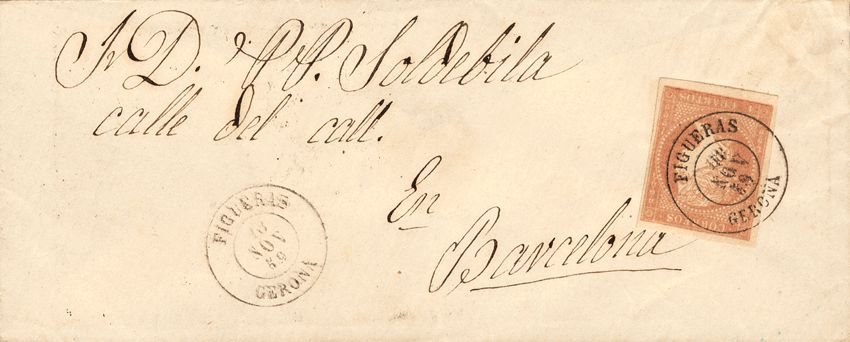 Sr D. PP. Soldebila
calle del call.
En
Barcelona
FIGUERAS
NOV
59
GERONA
CUARTOS
FIGUERAS
NOV
59
GERONA